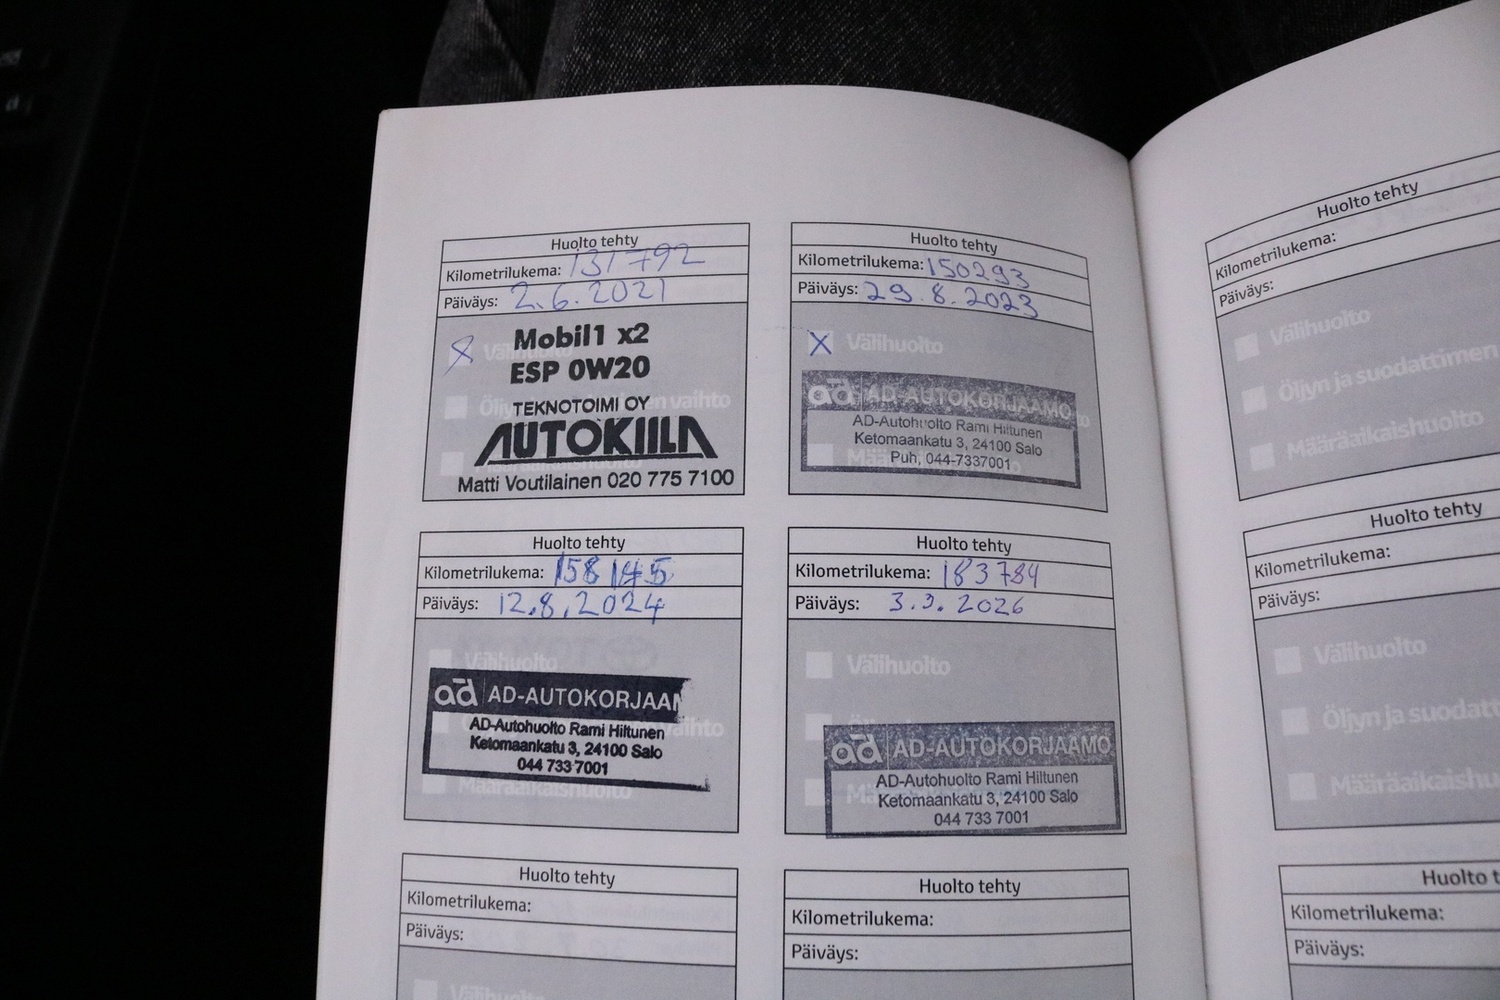 Huolto tehty
Kilometrilukema: 131792
Päiväys: 2.6.2021
Välihuolto
Mobil1 x2
ESP 0W20
TEKNOTOIMI OY
AUTOKIILA
Matti Voutilainen 020 775 7100
Huolto tehty
Kilometrilukema: 150293
Päiväys: 29.8.2023
Välihuolto
ad AD-AUTOKORJAAMO
AD-Autohuolto Rami Hiltunen
Ketomaankatu 3, 24100 Salo
Puh, 044-7337001
Huolto tehty
Kilometrilukema: 158145
Päiväys: 12.8.2024
Välihuolto
ad AD-AUTOKORJAAM
AD-Autohuolto Rami Hiltunen
Ketomaankatu 3, 24100 Salo
044 733 7001
Määräaikaishuolto
Huolto tehty
Kilometrilukema: 183784
Päiväys: 3.3.2026
Välihuolto
ad AD-AUTOKORJAAMO
AD-Autohuolto Rami Hiltunen
Ketomaankatu 3, 24100 Salo
044 733 7001
Huolto tehty
Kilometrilukema:
Päiväys:
Välihuolto
Huolto tehty
Kilometrilukema:
Päiväys:
Huolto tehty
Kilometrilukema:
Päiväys:
Välihuolto
Öljyn ja suodattimen
Määräaikaishuolto
Huolto tehty
Kilometrilukema:
Päiväys:
Välihuolto
Öljyn ja suodatt
Määräaikaishu
Huolto t
Kilometrilukema:
Päiväys: